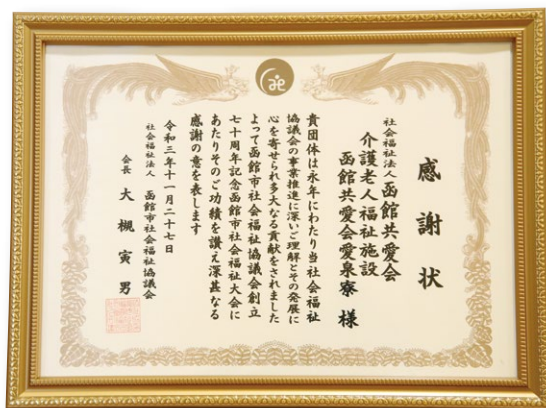 感謝状
社会福祉法人函館共愛会
介護老人福祉施設
函館共愛会愛泉寮 様
貴団体は永年にわたり当社会福祉
協議会の事業推進に深いご理解とその発展に
心を寄せられ多大なる貢献をされました
よって函館市社会福祉協議会創立
七十周年記念函館市社会福祉大会に
あたりそのご功績を讃え深甚なる
感謝の意を表します
令和三年十一月二十七日
社会福祉法人 函館市社会福祉協議会
会長 大槻寅男